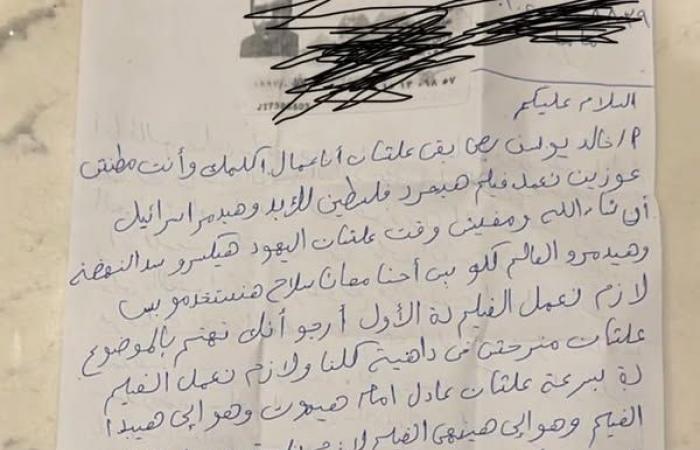 السلام عليكم
م/ خالد يوسف بص بقى علشان أنا عمال أكلمك وأنت مطنش
عوزين نعمل فيلم هيحرر فلسطين للأبد وهيدمر اسرائيل
أن شاء الله ومفيش وقت علشان اليهود هيكسرو سد النهضة
وهيدمرو العالم كلو بس أحنا معانا سلاح هنستخدمو بس
لازم نعمل الفيلم دة الأول أرجو أنك تهتم بالموضوع
دة بسرعة علشان منرحش في داهية كلنا ولازم نعمل الفيلم
علشان عادل امام هيموت وهو إلى هيبدأ
الفيلم وهو إلى هينهى الفيلم لازم